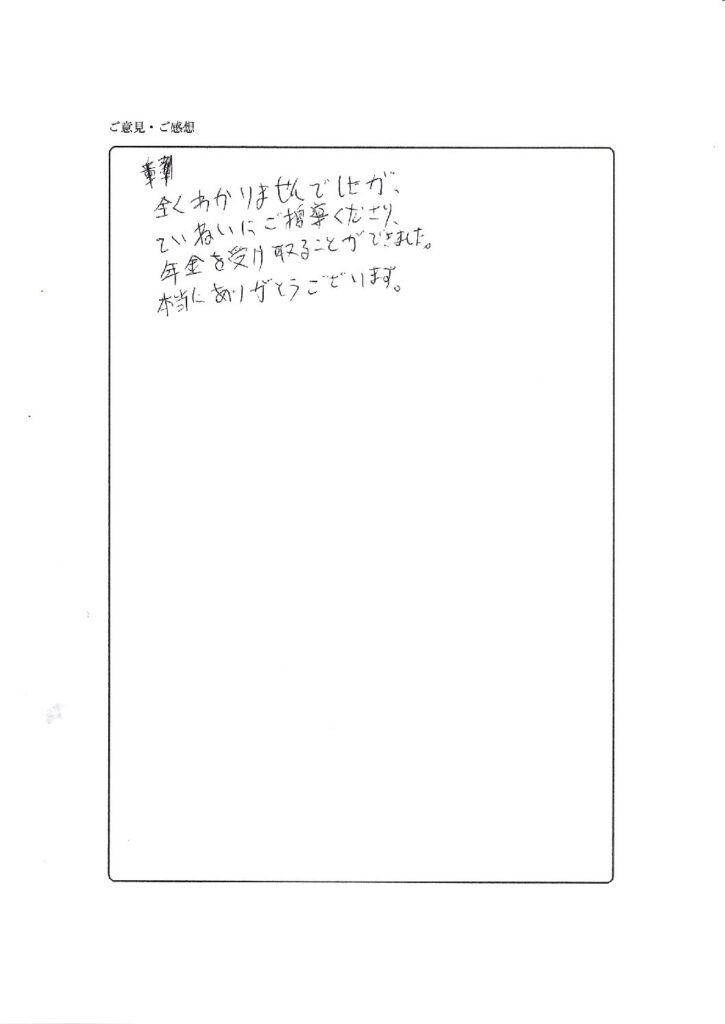 ご意見・ご感想
全くわかりませんでしたが、
ていねいにご指導くださり、
年金を受け取ることができました。
本当にありがとうございます。